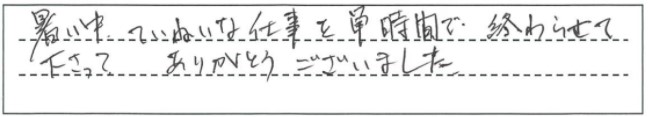 暑い中 ていねいな仕事を単時間で 終わらせて
下さって ありがとうございました